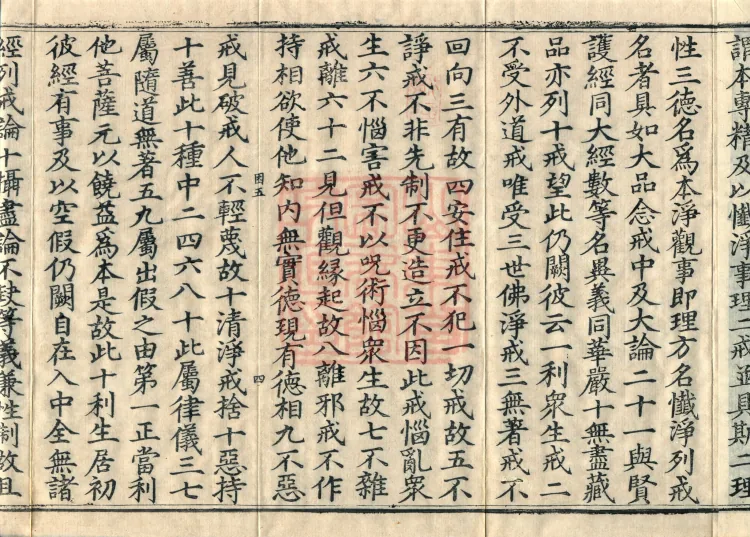 謂本專精及以懺淨事理二戒迴具斯二理
性三德名爲本淨觀事即理方名懺淨列戒
名者具如大品念戒中及大論二十一與賢
護經同大經數等名異義同華嚴十無盡藏
品亦列十戒望此仍闕彼云一利衆生戒二
不受外道戒唯受三世佛淨戒三無著戒不
回向三有故四安住戒不犯一切戒故五不
諍戒不非先制不更造立不因此戒惱亂衆
生六不惱害戒不以呪術惱衆生故七不雜
戒離六十二見但觀緣起故八離邪戒不作
持相欲使他知内無實德現有德相九不惡
困五 四
戒見破戒人不輕蔑故十清淨戒捨十惡持
十善此十種中二四六八十此屬律儀三七
屬隨道無著五九屬出假之由第一正當利
他菩薩元以饒益爲本是故此十利生居初
彼經有事及以空假仍闕自在入中全無諸
經列戒論十攝盡論不缺等義兼性制故且